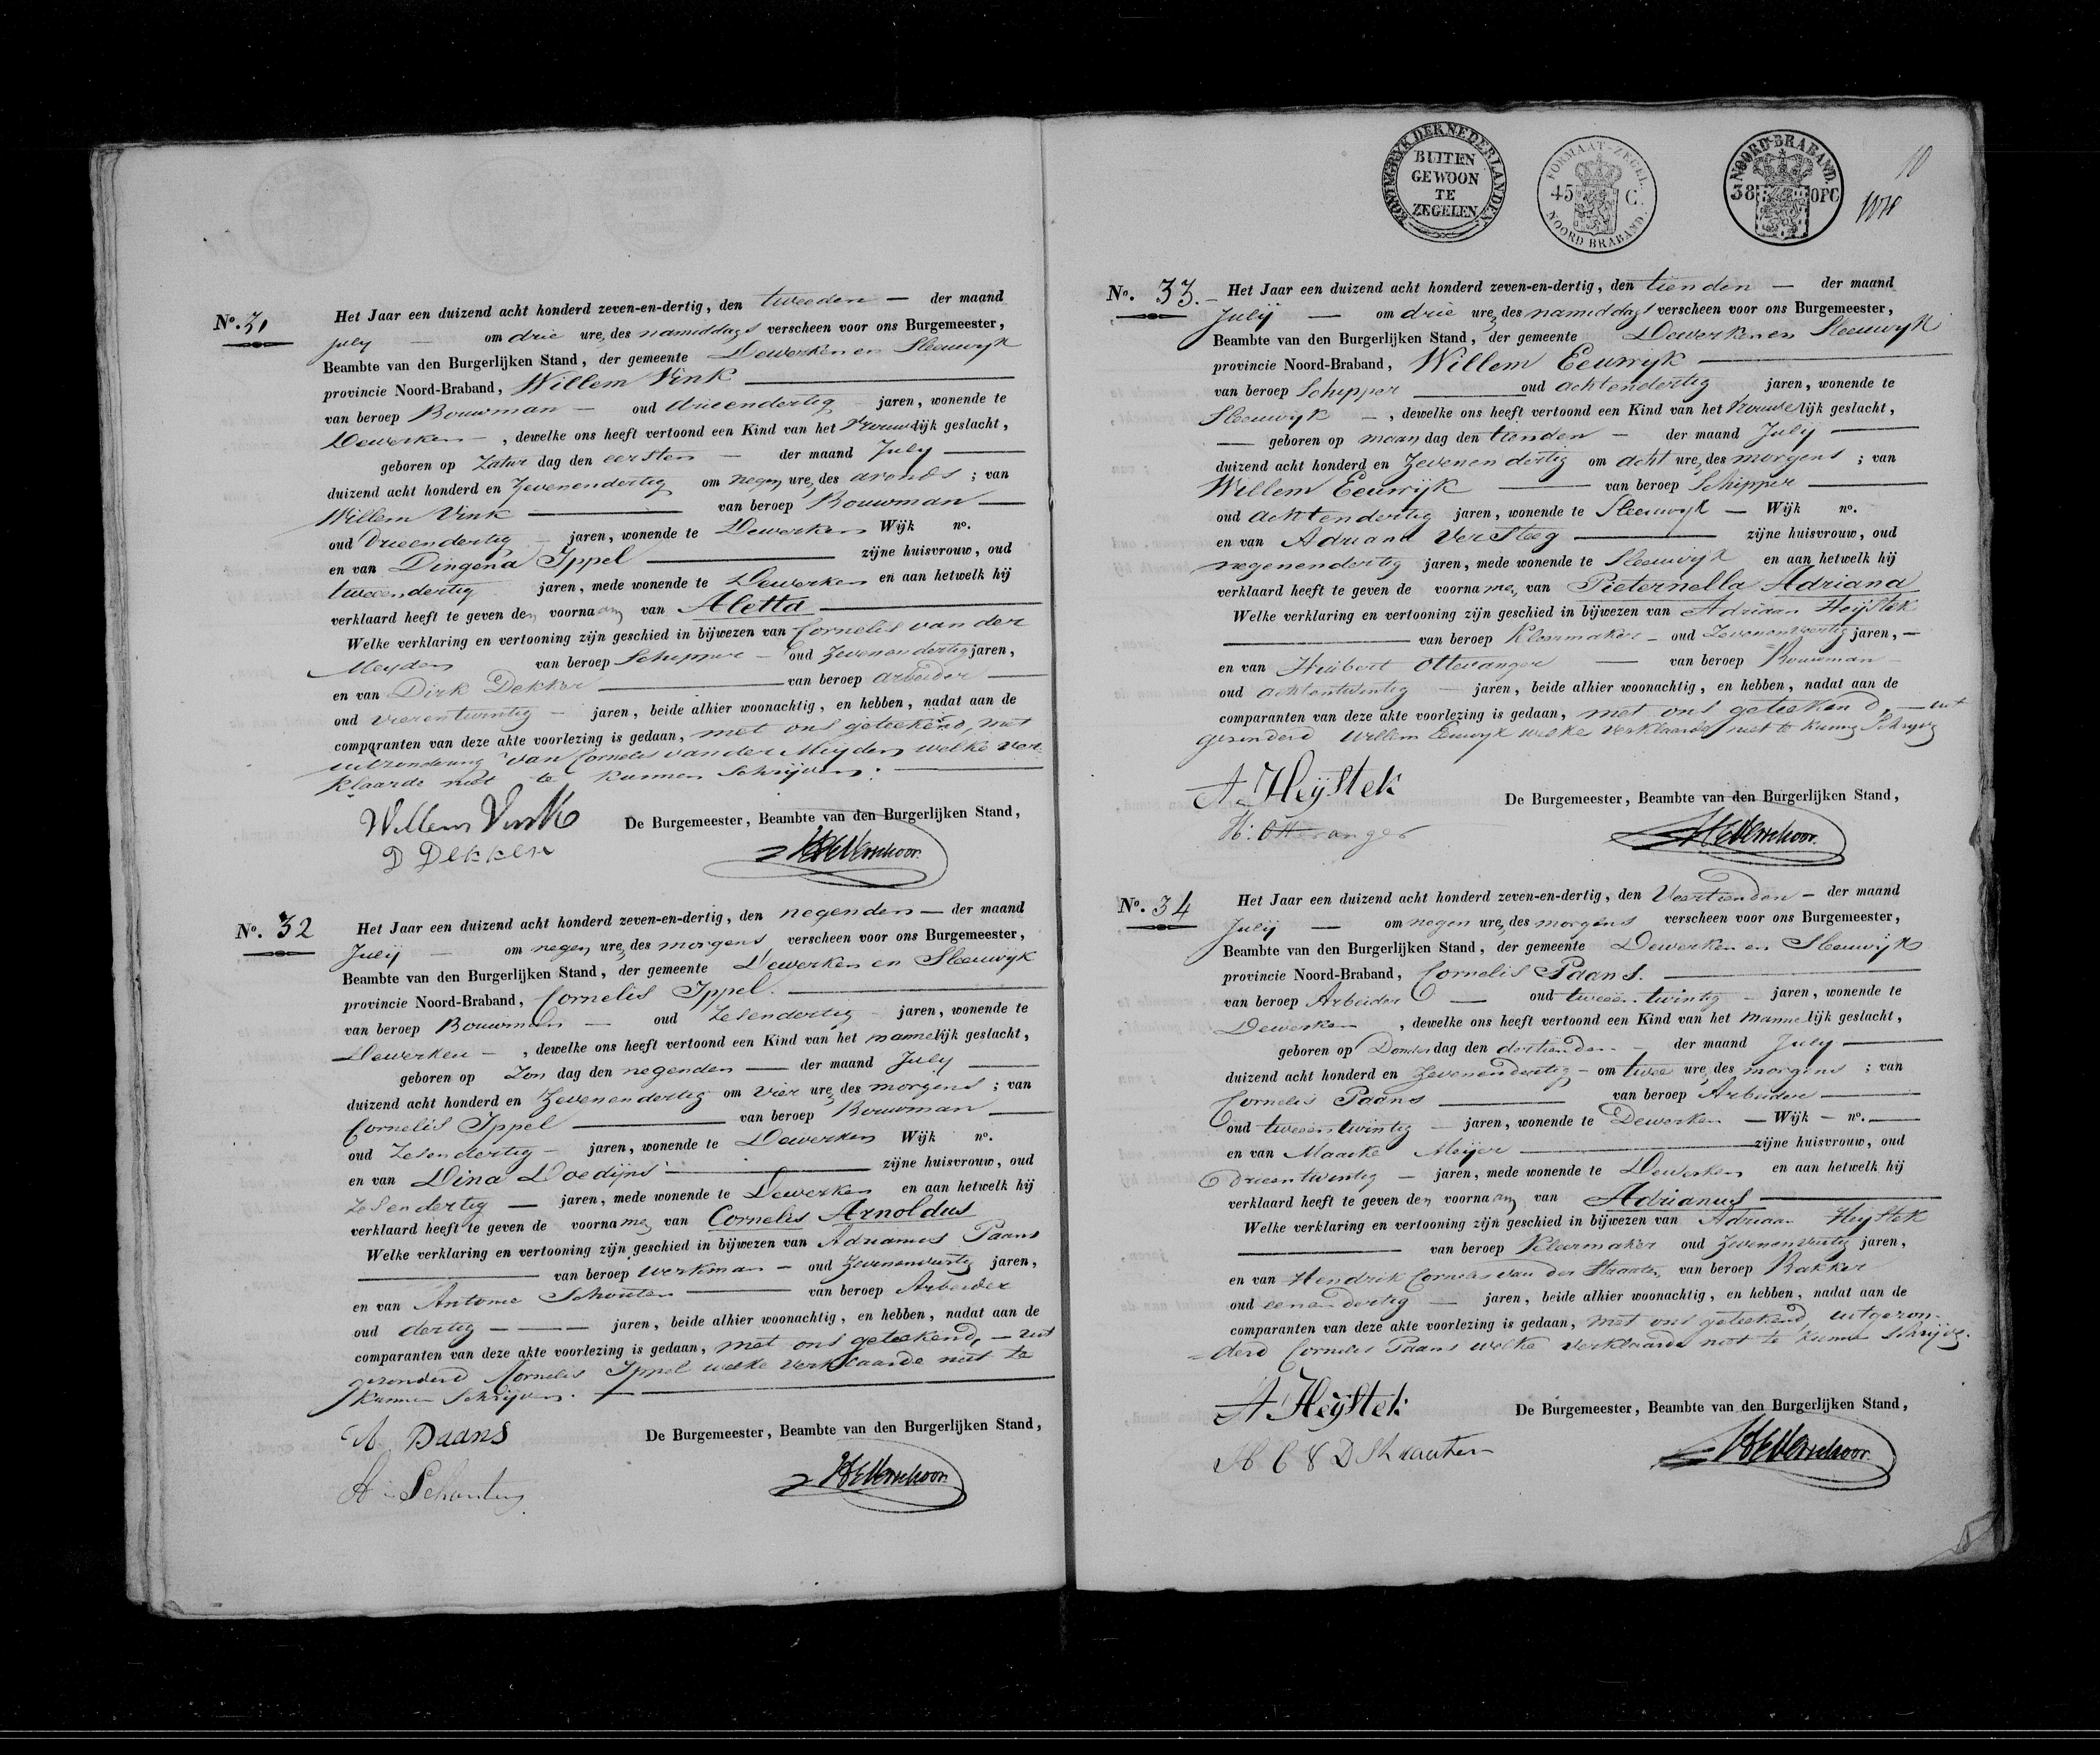 No. 31
Het Jaar een duizend acht honderd zeven-en-dertig, den tweeden — der maand
July — om drie ure, des namiddags verscheen voor ons Burgemeester,
Beambte van den Burgerlijken Stand, der gemeente Dewerken en Sleeuwyk
provincie Noord-Braband, Willem Vink
van beroep Bouwman — oud drieendertig jaren, wonende te
Dewerken —, dewelke ons heeft vertoond een Kind van het Vrouwelijk geslacht,
geboren op Zatur dag den eersten — der maand July
duizend acht honderd en Zevenendertig om negen ure, des avonds ; van
Willem Vink van beroep Bouwman
oud Drieendertig jaren, wonende te Dewerken Wijk no.
en van Dingena Ippel zijne huisvrouw, oud
tweeendertig jaren, mede wonende te Dewerken en aan hetwelk hij
verklaard heeft te geven den voornaam van Aletta
Welke verklaring en vertooning zijn geschied in bijwezen van Cornelis van der
Meyden van beroep Schipper — oud Zevenendertig jaren,
en van Dirk Dekker van beroep arbeider
oud vierentwintig — jaren, beide alhier woonachtig, en hebben, nadat aan de
comparanten van deze akte voorlezing is gedaan, met ons geteekend, met
uitzondering van Cornelis van der Meyden welke ver-
klaarde niet te kunnen Schrijven.
Willem Vink De Burgemeester, Beambte van den Burgerlijken Stand,
D Dekker
No. 32
Het Jaar een duizend acht honderd zeven-en-dertig, den negenden — der maand
July — om negen ure, des morgens verscheen voor ons Burgemeester,
Beambte van den Burgerlijken Stand, der gemeente Dewerken en Sleeuwijk
provincie Noord-Braband, Cornelis Ippel.
van beroep Bouwman — oud Zesendertig jaren, wonende te
Dewerken —, dewelke ons heeft vertoond een Kind van het mannelijk geslacht,
geboren op Zon dag den negenden — der maand July
duizend acht honderd en Zevenendertig om vier ure, des morgens ; van
Cornelis Ippel van beroep Bouwman
oud Zesendertig — jaren, wonende te Dewerken Wijk no.
en van Dina Doedijns zijne huisvrouw, oud
Zesendertig — jaren, mede wonende te Dewerken en aan hetwelk hij
verklaard heeft te geven de voorname, van Cornelis Arnoldus
Welke verklaring en vertooning zijn geschied in bijwezen van Adrianus Paans
van beroep Werkman — oud Zevenenveertig jaren,
en van Antonie Schouten van beroep Arbeider
oud dertig — jaren, beide alhier woonachtig, en hebben, nadat aan de
comparanten van deze akte voorlezing is gedaan, met ons geteekend, — uit
gezonderd Cornelis Ippel welke verklaarde niet te
kunnen Schrijven.
A Paans De Burgemeester, Beambte van den Burgerlijken Stand,
A Schouten
KONINGRYK DER NEDERLANDEN
BUITEN
GEWOON
TE
ZEGELEN
FORMAAT-ZEGEL.
45 C.
NOORD BRABAND.
NOORD-BRABAND.
38 OPC
10
No. 33.
Het Jaar een duizend acht honderd zeven-en-dertig, den tienden — der maand
July — om drie ure, des namiddags verscheen voor ons Burgemeester,
Beambte van den Burgerlijken Stand, der gemeente Dewerken en Sleeuwyk
provincie Noord-Braband, Willem Eeuwyk
van beroep Schipper oud achtendertig jaren, wonende te
Sleeuwyk —, dewelke ons heeft vertoond een Kind van het Vrouwelijk geslacht,
— geboren op maan dag den tienden — der maand July
duizend acht honderd en Zevenendertig om acht ure, des morgens ; van
Willem Eeuwijk van beroep Schipper
oud achtendertig jaren, wonende te Sleeuwyk — Wijk no.
en van Adriana VerSteeg zijne huisvrouw, oud
negenendertig jaren, mede wonende te Sleeuwyk en aan hetwelk hij
verklaard heeft te geven de voorname, van Pieternella Adriana
Welke verklaring en vertooning zijn geschied in bijwezen van Adriaan Heystek
van beroep Kleermaker — oud Zevenenveertig jaren, —
en van Huibert Ottevanger — van beroep Bouwman
oud achtentwintig — jaren, beide alhier woonachtig, en hebben, nadat aan de
comparanten van deze akte voorlezing is gedaan, met ons geteekend, — uit
gezonderd Willem Eeuwyk welke verklaarde niet te kunnen Schrijven
A Heijstek De Burgemeester, Beambte van den Burgerlijken Stand,
H: Ottevanger
No. 34
Het Jaar een duizend acht honderd zeven-en-dertig, den Veertienden — der maand
July — om negen ure, des morgens verscheen voor ons Burgemeester,
Beambte van den Burgerlijken Stand, der gemeente Dewerken en Sleeuwijk
provincie Noord-Braband, Cornelis Paans.
van beroep Arbeider — oud tweeentwintig — jaren, wonende te
Dewerken, dewelke ons heeft vertoond een Kind van het Mannelijk geslacht,
geboren op Donder dag den dertienden — der maand July
duizend acht honderd en Zevenendertig — om twee ure, des morgens ; van
Cornelis Paans van beroep Arbeider
oud tweeentwintig — jaren, wonende te Dewerken — Wijk — no. —
en van Maaike Meijer zijne huisvrouw, oud
drieentwintig — jaren, mede wonende te Dewerken en aan hetwelk hij
verklaard heeft te geven den voornaam van Adrianus
Welke verklaring en vertooning zijn geschied in bijwezen van Adriaan Heystek
van beroep Kleermaker oud Zevenenveertig jaren,
en van Hendrik Cornelis van der Straaten, van beroep Bakker
oud eenendertig — jaren, beide alhier woonachtig, en hebben, nadat aan de
comparanten van deze akte voorlezing is gedaan, met ons geteekend uitgezon-
derd Cornelis Paans welke verklaarde niet te kunnen Schrijven.
A Heijstek De Burgemeester, Beambte van den Burgerlijken Stand,
H C V D Straaten